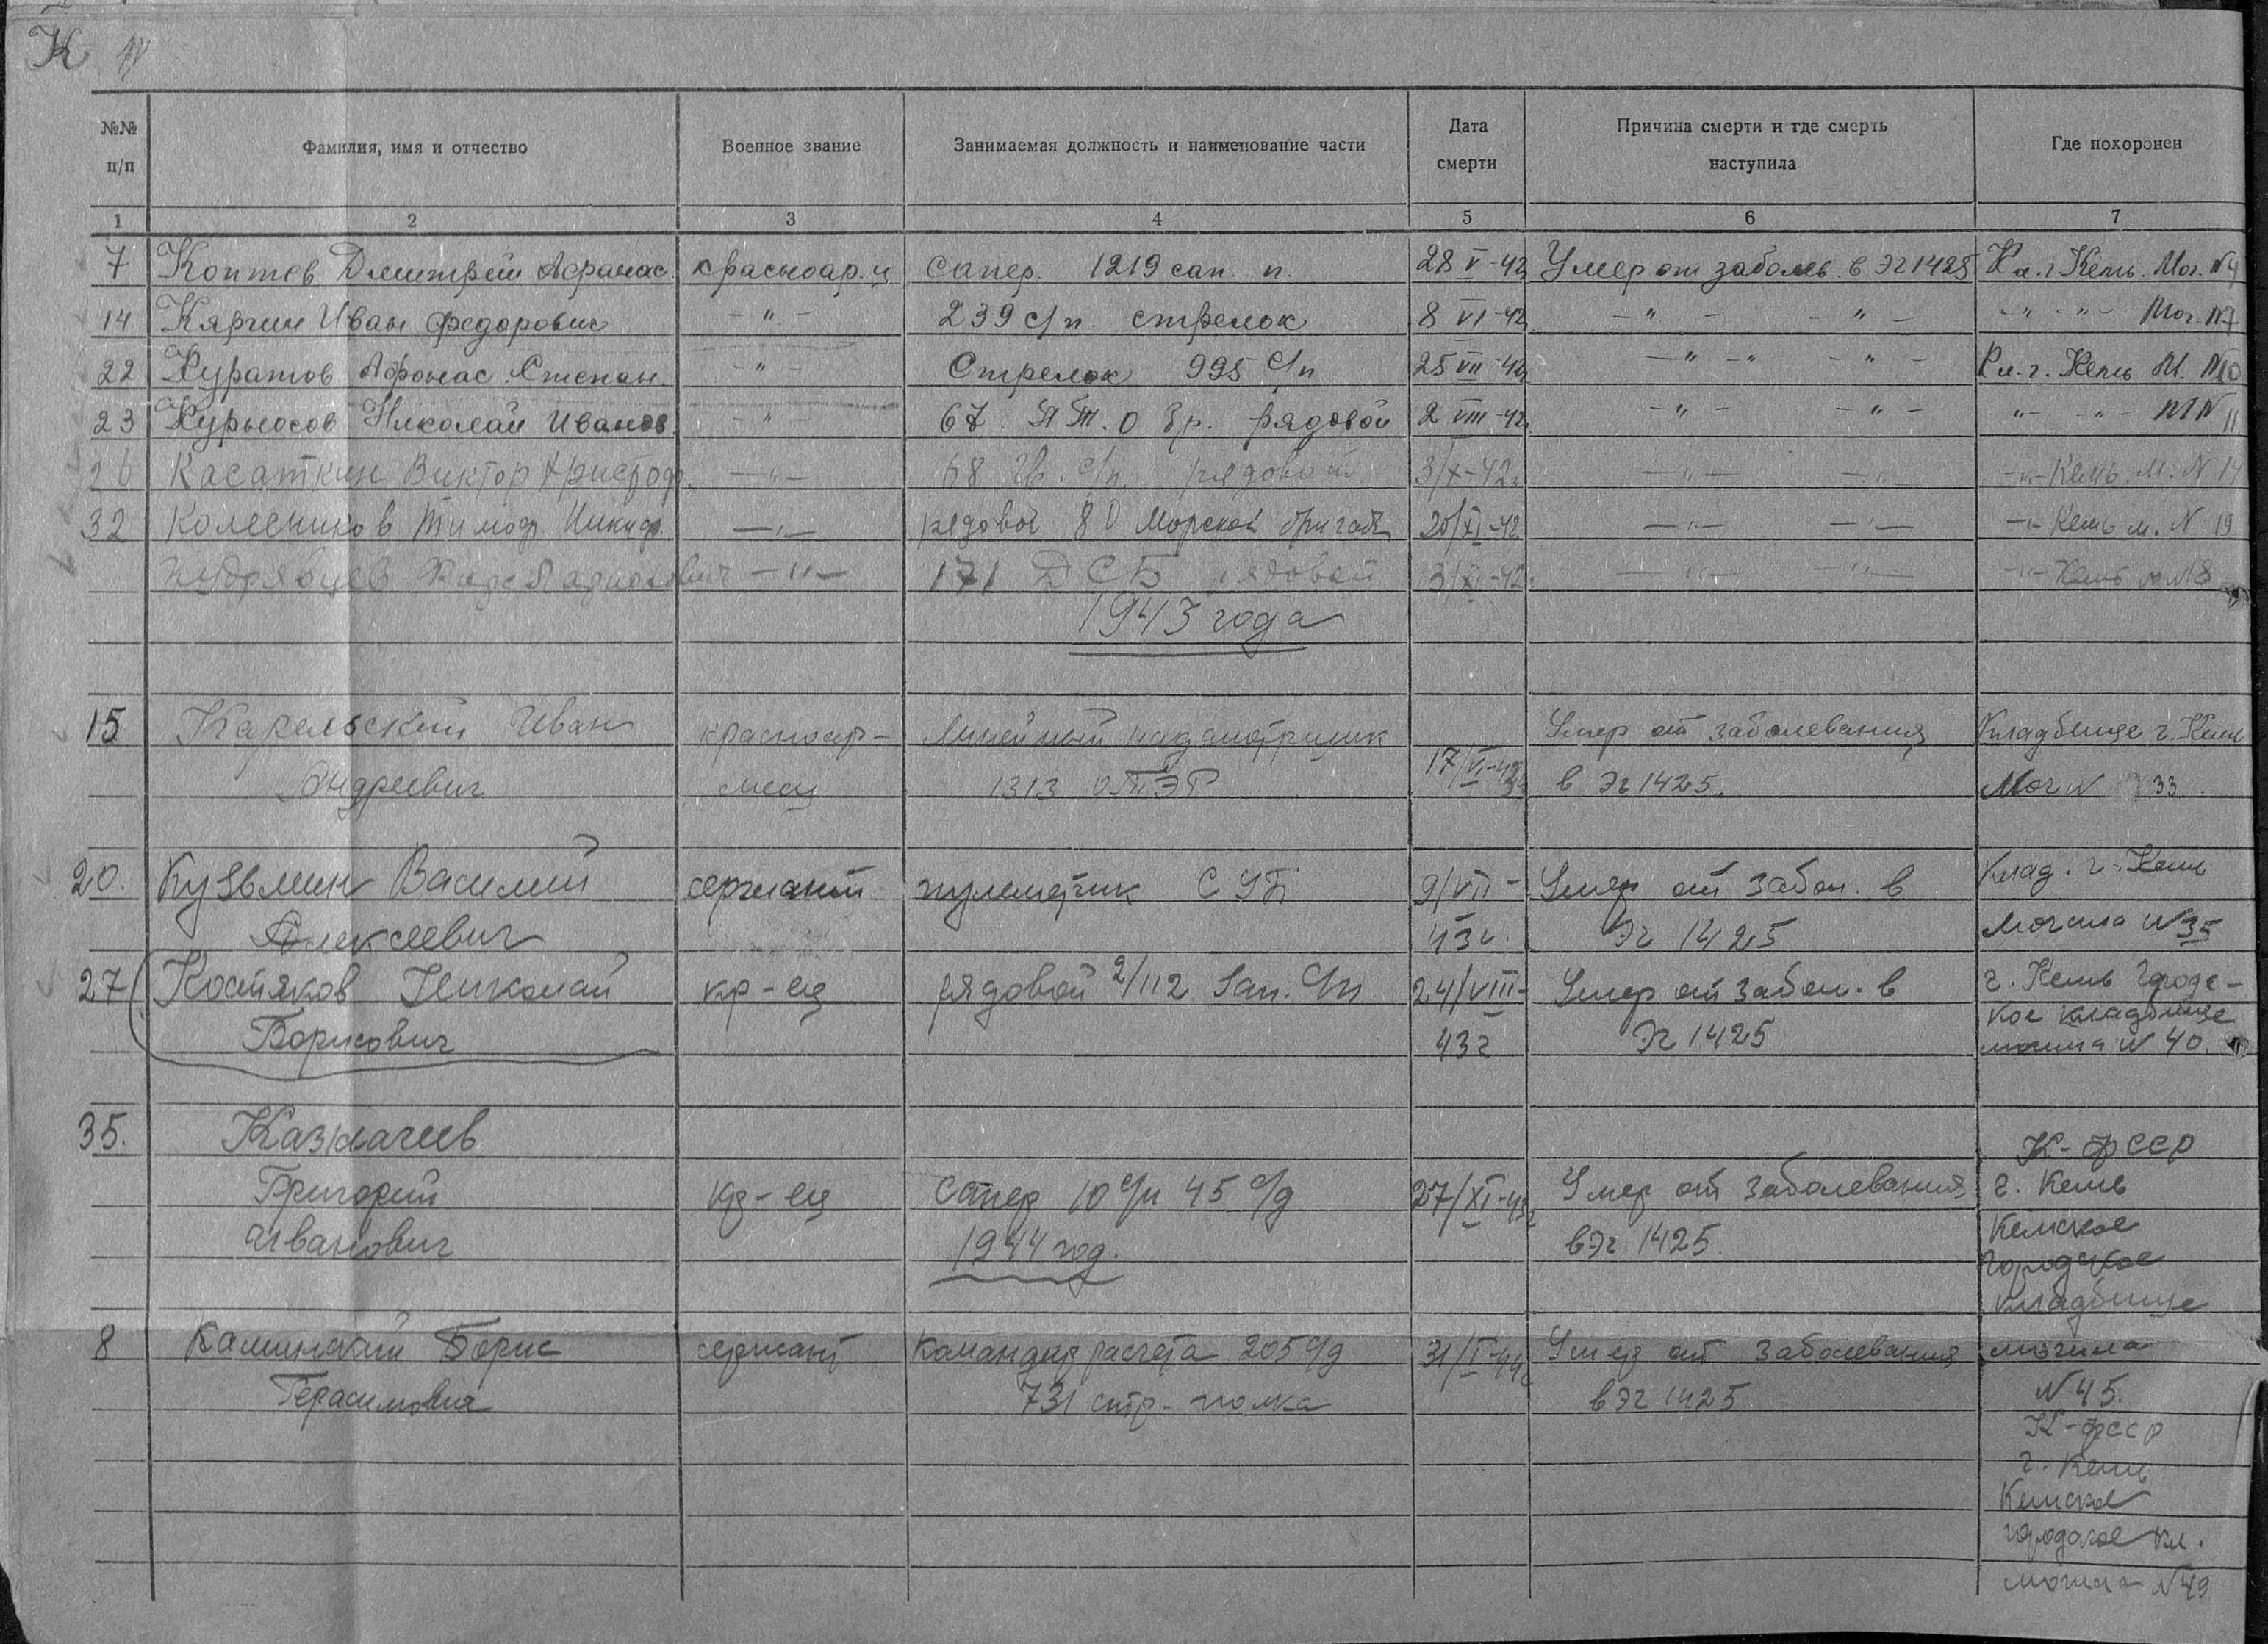 К
№№ п/п Фамилия, имя и отчество Военное звание Занимаемая должность и наименование части Дата смерти Причина смерти и где смерть наступила Где похоронен
1 2 3 4 5 6 7
7 Коптев Дмитрий Афанас. красноар.ц Сапер. 1219 сап. п. 28 V-42 Умер от заболев. в Эг 1425 Кл. г. Кемь. Мог. №4
14 Каргин Иван Федорович -"- 239 с/п. стрелок 8 VI-42 -"- -"- -"- -"- Мог. №7
22 Куратов Афонас. Степан. -"- Стрелок 995 с/п 25 VII-42 -"- -"- -"- Кл. г. Кемь М. №10
23 Курносов Николай Иванов. -"- 67. рядовой 2 VIII-42 -"- -"- -"- -"- М N 11
26 Касаткин Виктор Христоф. -"- 68 гв. с/п. рядовой 3/X-42г -"- -"- -"- Кемь. М. N 14
32 Колесников Тимоф. Никиф. -"- рядовой 80 Морской бригады 20/XI-42 -"- -"- -"- Кемь м. N 19
Кудрявцев -"- 171 ДСБ рядовой 3/XI-42. -"- -"- -"- Кемь м N 8
1943 года
15 Карельский Иван красноар- Линейный надсмотрщик Умер от заболевания Кладбище г. Кемь
Андреевич меец 1313 17/VI-43 в Эг 1425. Мог N 33.
20. Кузьмин Василий сержант пулеметчик СУБ 9/VII- Умер от забол. в Клад. г. Кемь
Алексеевич 43г. Эг 1425 могила N 35
27 Костяков Николай кр-ец рядовой 2/112 Зап. с/п 24/VIII- Умер от забол. в г. Кемь Городс-
кое кладбище
Борисович 43г Эг 1425 могила N 40.
35. Казначеев
К-ФССР
Григорий кр-ец Сапер 10 с/п 45 с/д 27/XI-43г Умер от заболевания г. Кемь
Иванович 1944 год. в Эг 1425. Кемское
городское
кладбище
8 Каминский Борис сержант Командир расчета 205 с/д 31/I-44г Умер от заболевания могила
Герасимович 731 стр-полка в Эг 1425 N 45.
К-ФССР
г. Кемь
Кемское
городское кл.
могила N 49